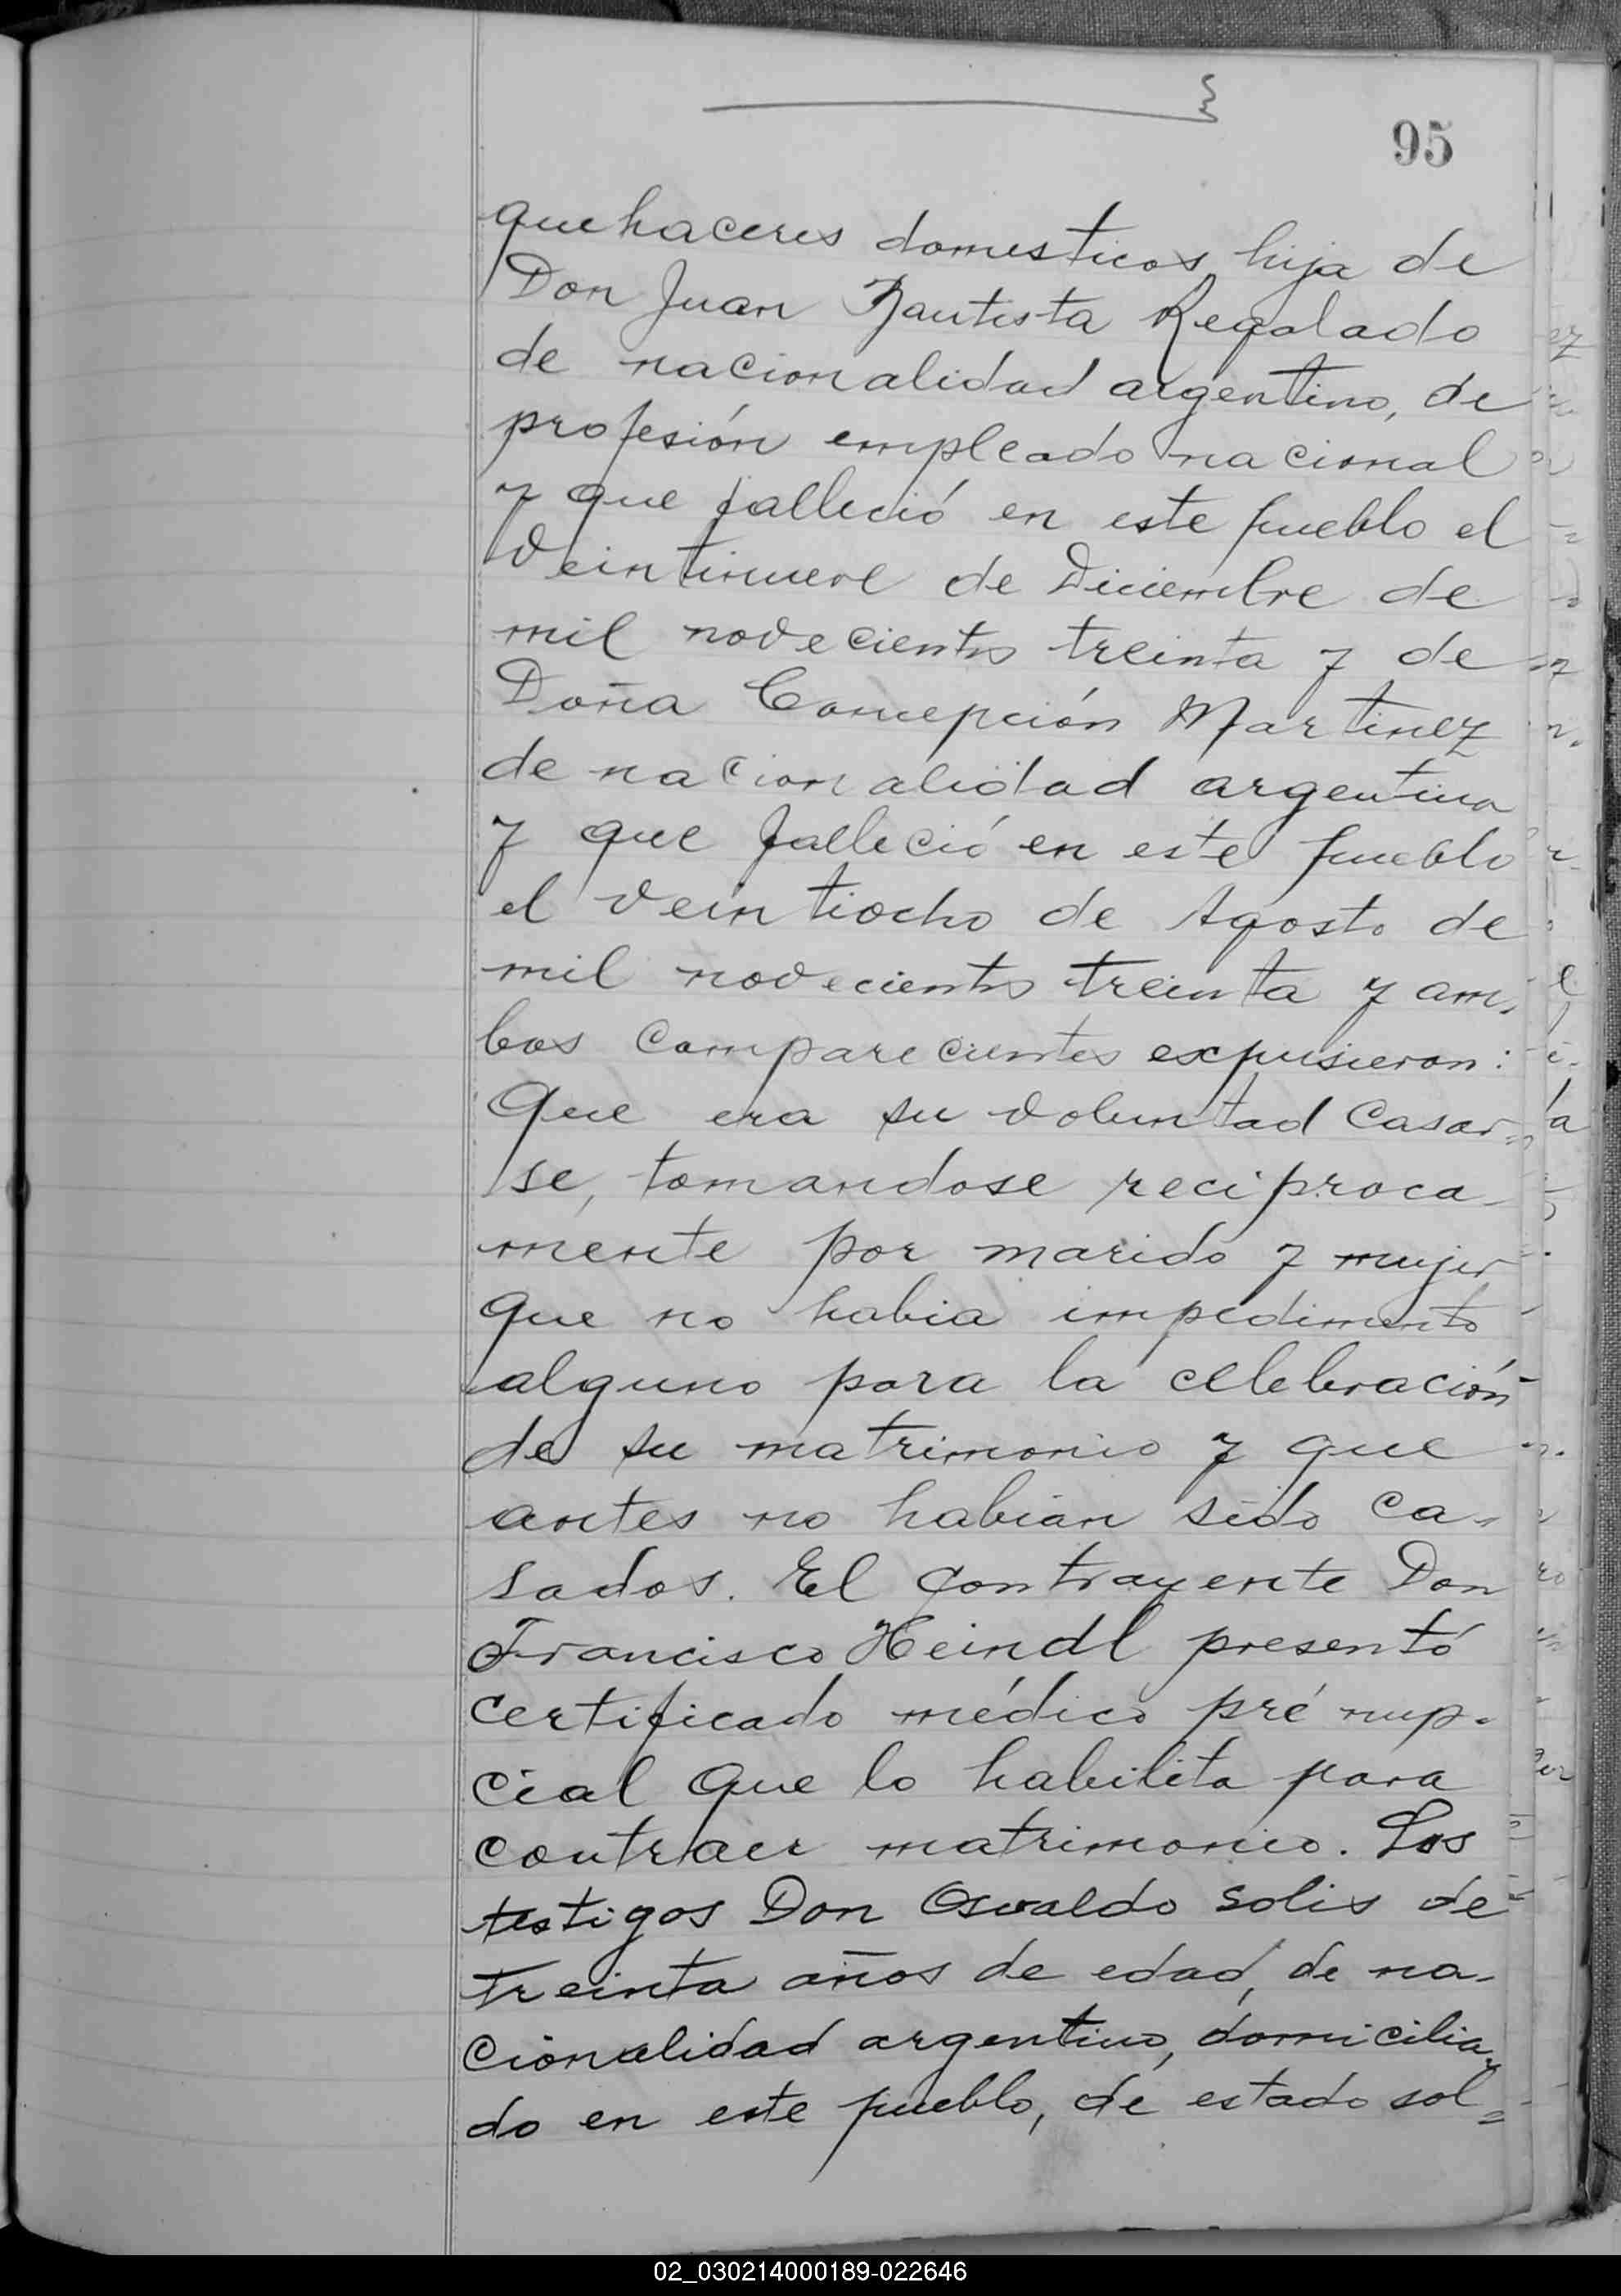 95
quehaceres domesticos, hija de
Don Juan Bautista Regalado
de nacionalidad argentino, de
profesión empleado nacional
y que falleció en este pueblo el
Veintinueve de Diciembre de
mil novecientos treinta y de
Doña Concepción Martinez
de nacionalidad argentina
y que falleció en este pueblo
el veintiocho de Agosto de
mil novecientos treinta y am-
bos comparecientes expusieron:
Que era su voluntad casar=
se, tomandose reciproca-
mente por marido y mujer,
que no habia impedimento
alguno para la celebración
de su matrimonio y que
antes no habian sido ca-
sados. El contrayente Don
Francisco Heindl presentó
certificado médico pré nup-
cial que lo habilita para
contraer matrimonio. Los
testigos Don Osvaldo Solis de
treinta años de edad, de na-
cionalidad argentino, domicilia-
do en este pueblo, de estado sol=
02_030214000189-022646